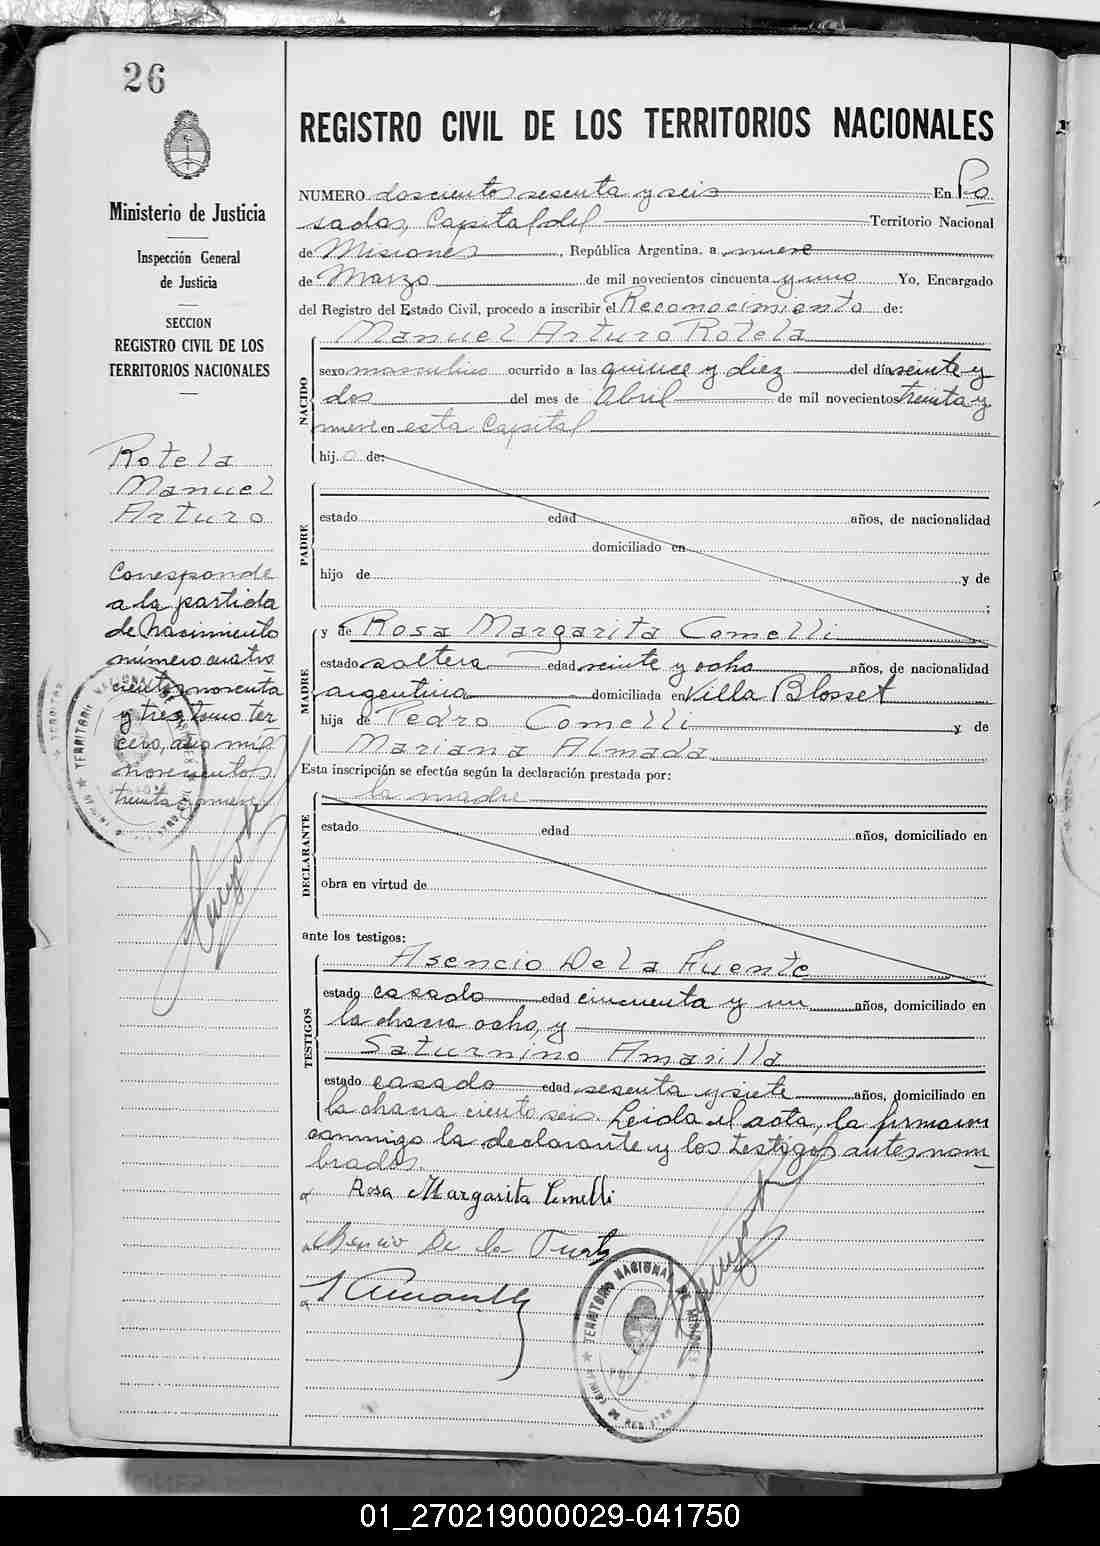 26
Ministerio de Justicia
Inspección General
de Justicia
SECCION
REGISTRO CIVIL DE LOS
TERRITORIOS NACIONALES
Rotela
Manuel
Arturo
Corresponde
a la partida
de Nacimiento
número cuatro
cientos noventa
y tres, tomo ter-
cero, año mil
novecientos
treinta y nueve
REGISTRO CIVIL DE LOS TERRITORIOS NACIONALES
NUMERO doscientos sesenta y seis En Po
sadas, Capital del Territorio Nacional
de Misiones, República Argentina, a nueve
de Marzo de mil novecientos cincuenta y uno Yo, Encargado
del Registro del Estado Civil, procedo a inscribir el Reconocimiento de:
NACIDO
Manuel Arturo Rotela
sexo masculino ocurrido a las quince y diez del día veinte y
dos del mes de Abril de mil novecientos treinta y
nueve en esta Capital
hijo de:
PADRE
estado edad años, de nacionalidad
domiciliado en
hijo de y de
;
MADRE
y de Rosa Margarita Comelli
estado soltera edad veinte y ocho años, de nacionalidad
argentina domiciliada en Villa Blosset
hija de Pedro Comelli y de
Mariana Almada
Esta inscripción se efectúa según la declaración prestada por:
DECLARANTE
la madre
estado edad años, domiciliado en
obra en virtud de
ante los testigos:
TESTIGOS
Asencio De la Fuente
estado casado edad cincuenta y un años, domiciliado en
la chacra ocho, y
Saturnino Amarilla
estado casado edad sesenta y siete años, domiciliado en
la chacra ciento seis. Leida el acta, la firmaron
conmigo la declarante y los testigos antes nom-
brados.
Rosa Margarita Comelli
Asencio De la Fuente
S Amarilla
TERRITORIO NACIONAL DE MISIONES
01_270219000029-041750